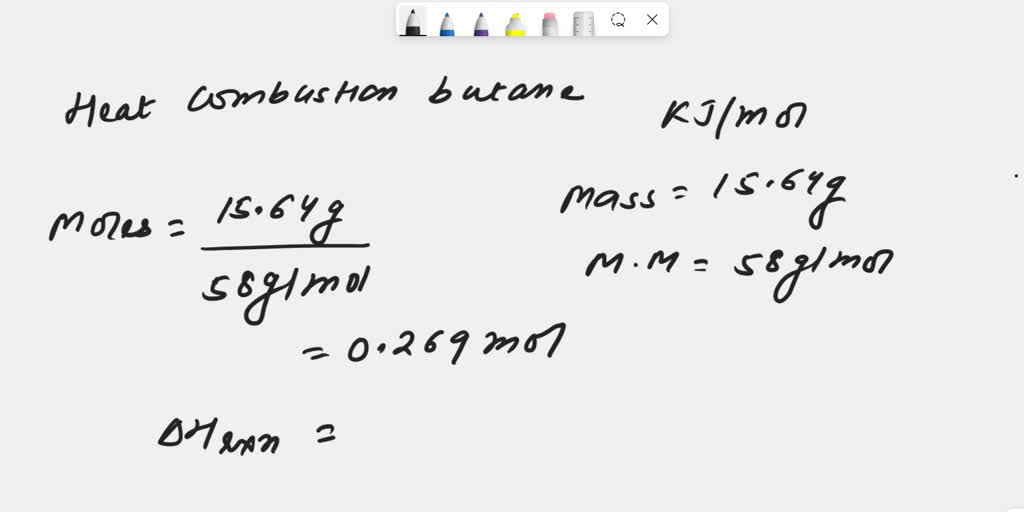 Heat combustion butane
KJ/mol
Moles = 15.64g / 58g/mol
= 0.269 mol
Mass = 15.64g
M.M = 58g/mol
ΔHrxn =